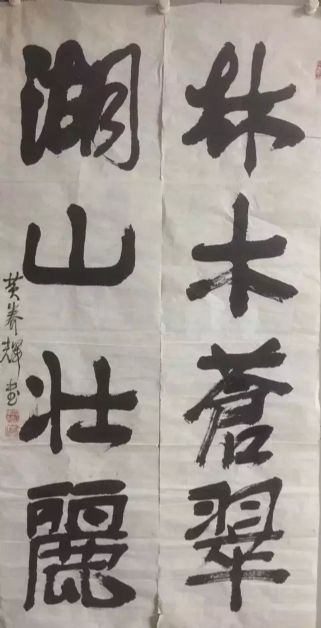 林木蒼翠
湖山壯麗
黄养輝書